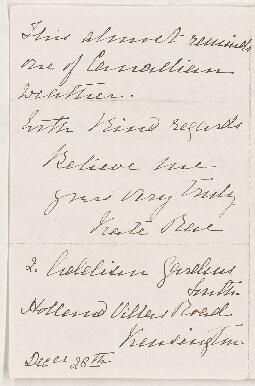 This almost reminds
one of Canadian
weather.
With Kind regards
Believe me
yours very truly
Kate Rae
2. Addison Gardens
South
Holland Villas Road
Kensington
Decr 28th